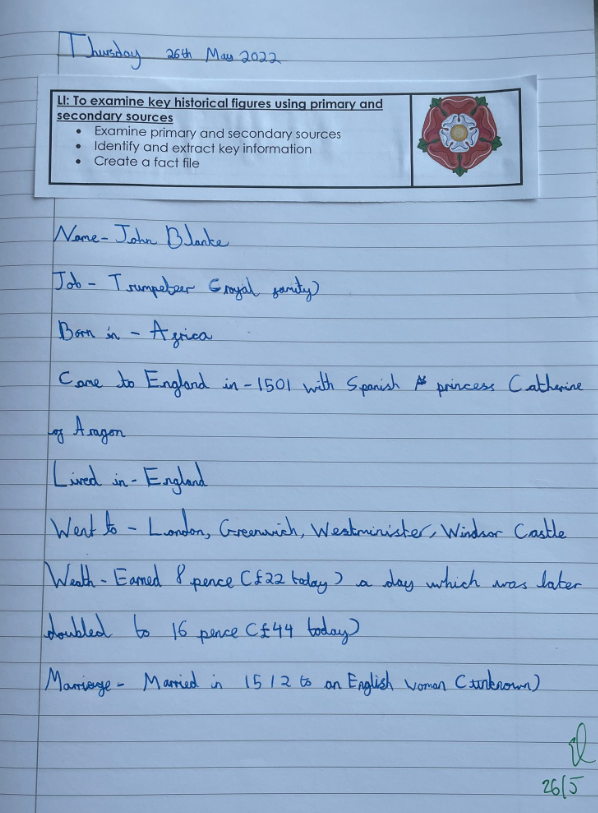 Thursday 26th May 2022
LI: To examine key historical figures using primary and
secondary sources
• Examine primary and secondary sources
• Identify and extract key information
• Create a fact file
Name - John Blanke
Job - Trumpeter (royal family)
Born in - Africa
Came to England in - 1501 with Spanish princess Catherine
of Aragon
Lived in - England
Went to - London, Greenwich, Westminister, Windsor Castle
Weath - Earned 8 pence (£22 today) a day which was later
doubled to 16 pence (£44 today)
Marriage - Married in 1512 to an English woman (unknown)
26/5